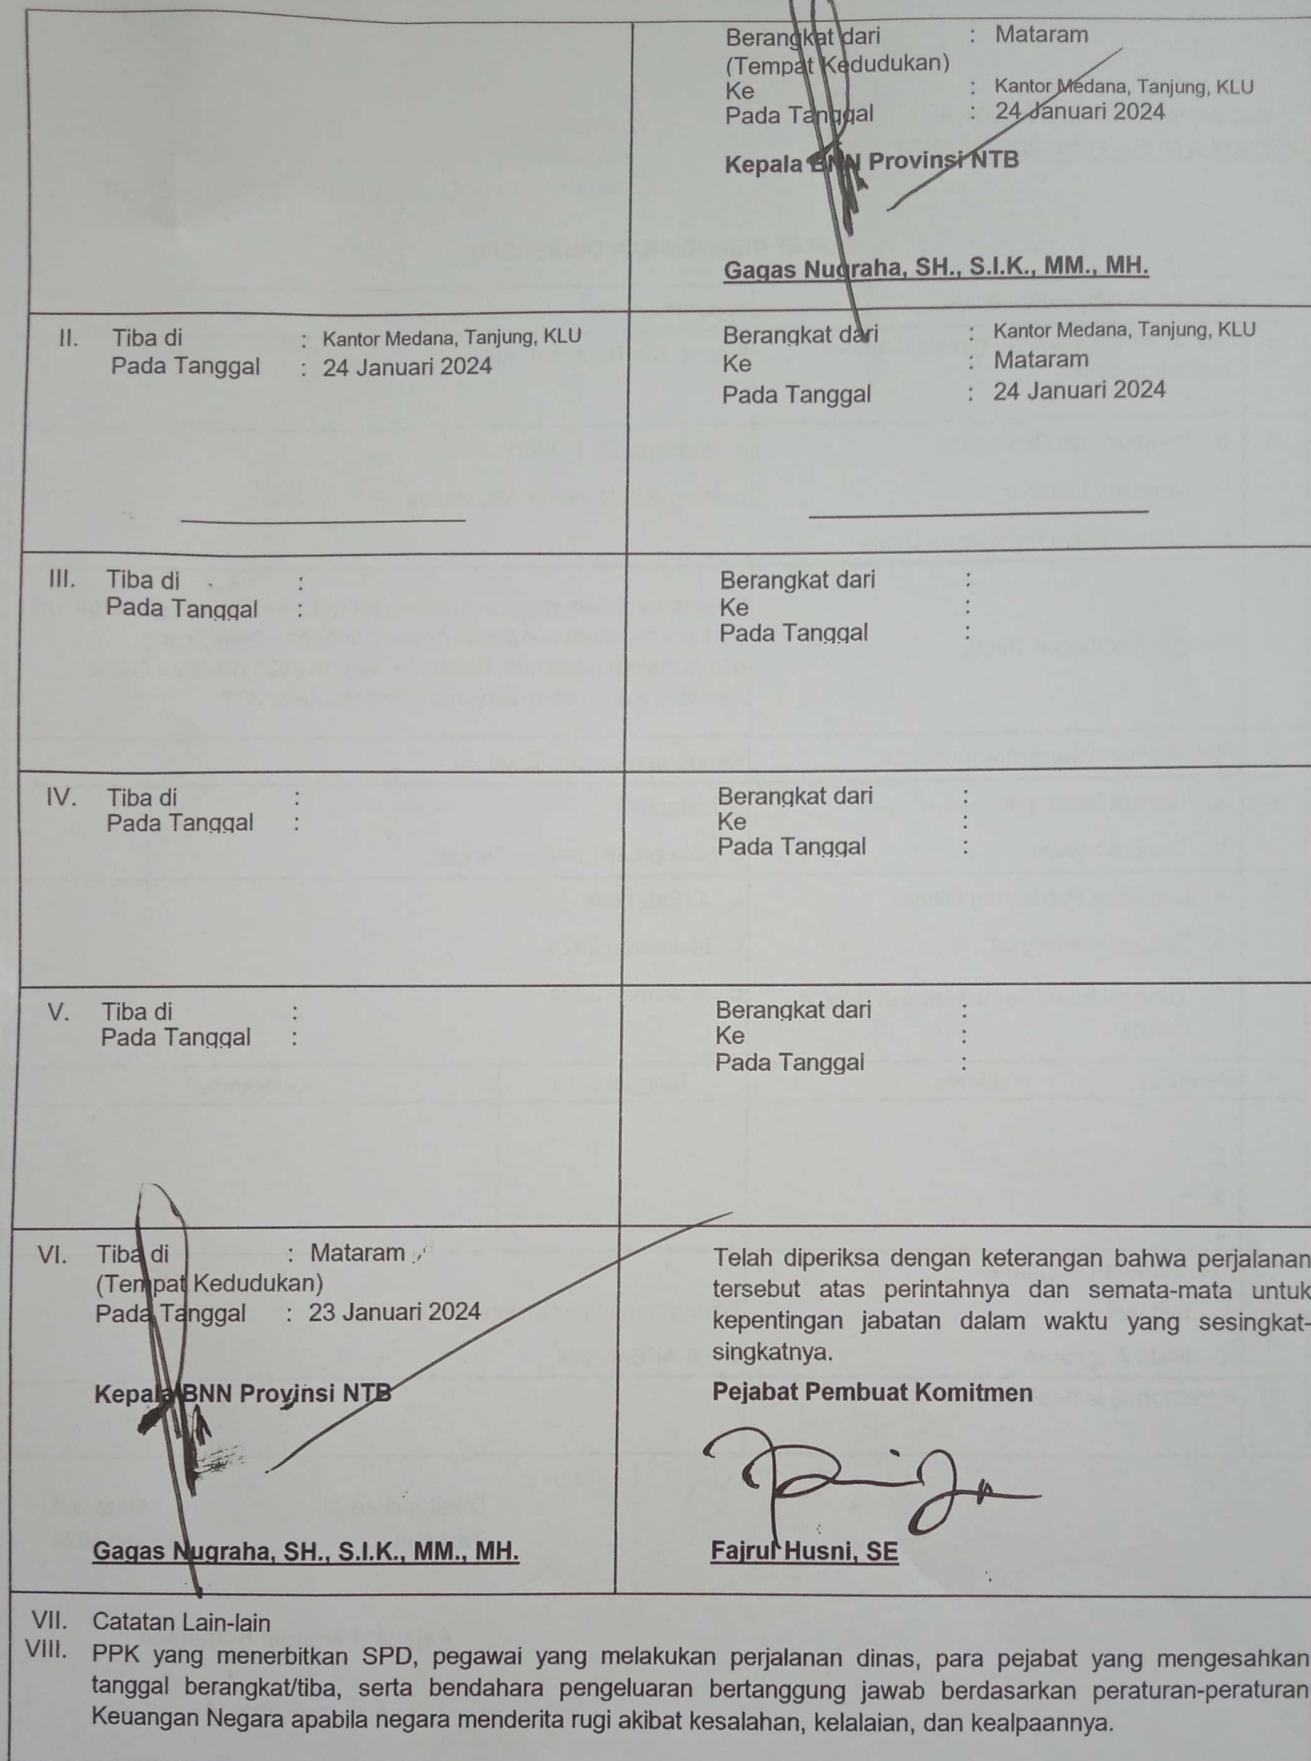 Berangkat dari : Mataram
(Tempat Kedudukan)
Ke : Kantor Medana, Tanjung, KLU
Pada Tanggal : 24 Januari 2024
Kepala BNN Provinsi NTB
Gagas Nugraha, SH., S.I.K., MM., MH.
II. Tiba di : Kantor Medana, Tanjung, KLU
Pada Tanggal : 24 Januari 2024
Berangkat dari : Kantor Medana, Tanjung, KLU
Ke : Mataram
Pada Tanggal : 24 Januari 2024
III. Tiba di :
Pada Tanggal :
Berangkat dari :
Ke :
Pada Tanggal :
IV. Tiba di :
Pada Tanggal :
Berangkat dari :
Ke :
Pada Tanggal :
V. Tiba di :
Pada Tanggal :
Berangkat dari :
Ke :
Pada Tanggal :
VI. Tiba di : Mataram
(Tempat Kedudukan)
Pada Tanggal : 23 Januari 2024
Kepala BNN Provinsi NTB
Gagas Nugraha, SH., S.I.K., MM., MH.
Telah diperiksa dengan keterangan bahwa perjalanan
tersebut atas perintahnya dan semata-mata untuk
kepentingan jabatan dalam waktu yang sesingkat-
singkatnya.
Pejabat Pembuat Komitmen
Fajrul Husni, SE
VII. Catatan Lain-lain
VIII. PPK yang menerbitkan SPD, pegawai yang melakukan perjalanan dinas, para pejabat yang mengesahkan
tanggal berangkat/tiba, serta bendahara pengeluaran bertanggung jawab berdasarkan peraturan-peraturan
Keuangan Negara apabila negara menderita rugi akibat kesalahan, kelalaian, dan kealpaannya.